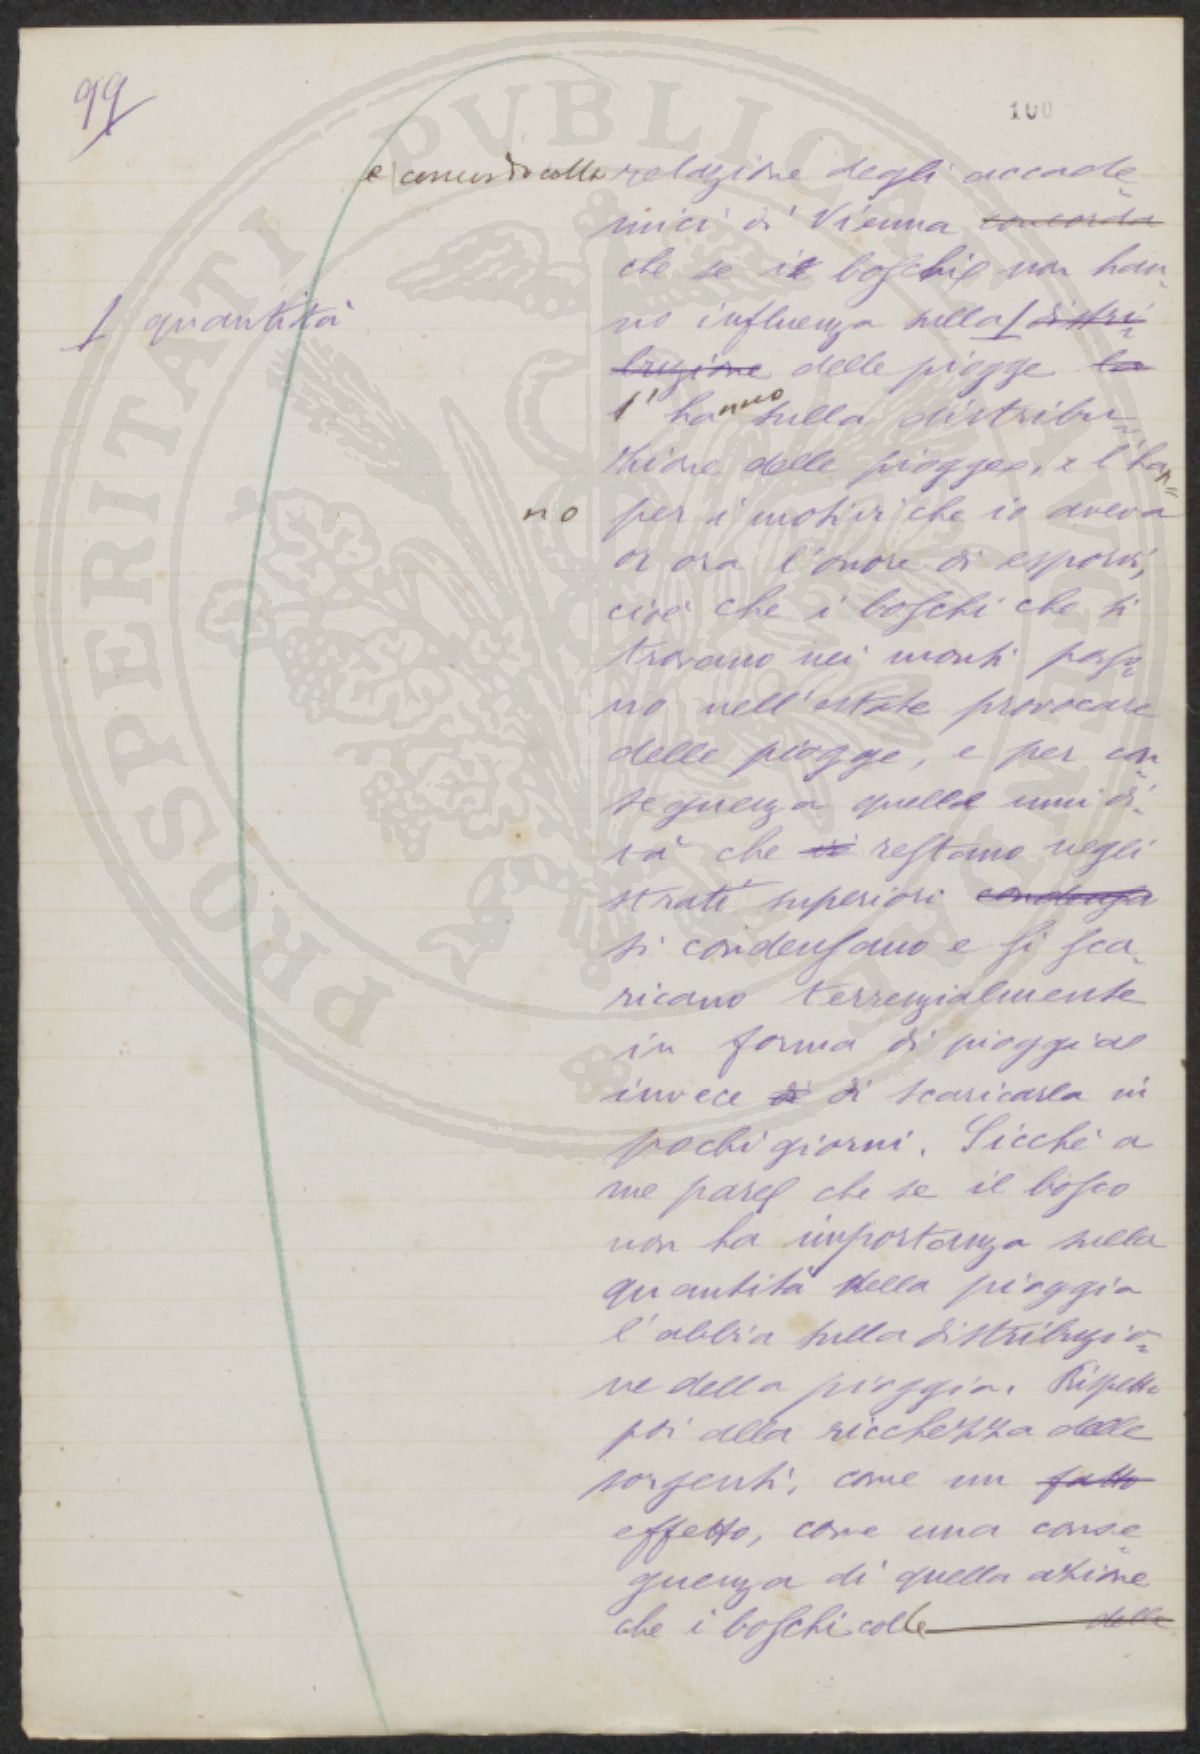 99
100
e concorda colla relazione degli accade=
mici di Vienna concorda
che se i boschi non han=
1 quantità
no influenza sulla 1 distri=
buzione delle piogge la
l' hanno sulla distribu=
zione delle piogge, e l'han=
no per i motivi che io aveva
or ora l'onore di esporvi,
cioè che i boschi che si
trovano nei monti posso=
no nell'estate provocare
delle piogge, e per con=
seguenza quelle umidi=
tà che si restano negli
strati superiori condensa
si condensano e si sca=
ricano terrenzialmente
in forma di pioggia
invece di di scaricarla in
pochi giorni. Sicchè a
me pare che se il bosco
non ha importanza sulla
quantità della pioggia
l'abbia sulla distribuzio=
ne della pioggia. Rispetto
poi alla ricchezza delle
sorgenti, come un fatto
effetto, come una conse=
guenza di quella azione
che i boschi colle della
PROSPERITATI PVBLICAE